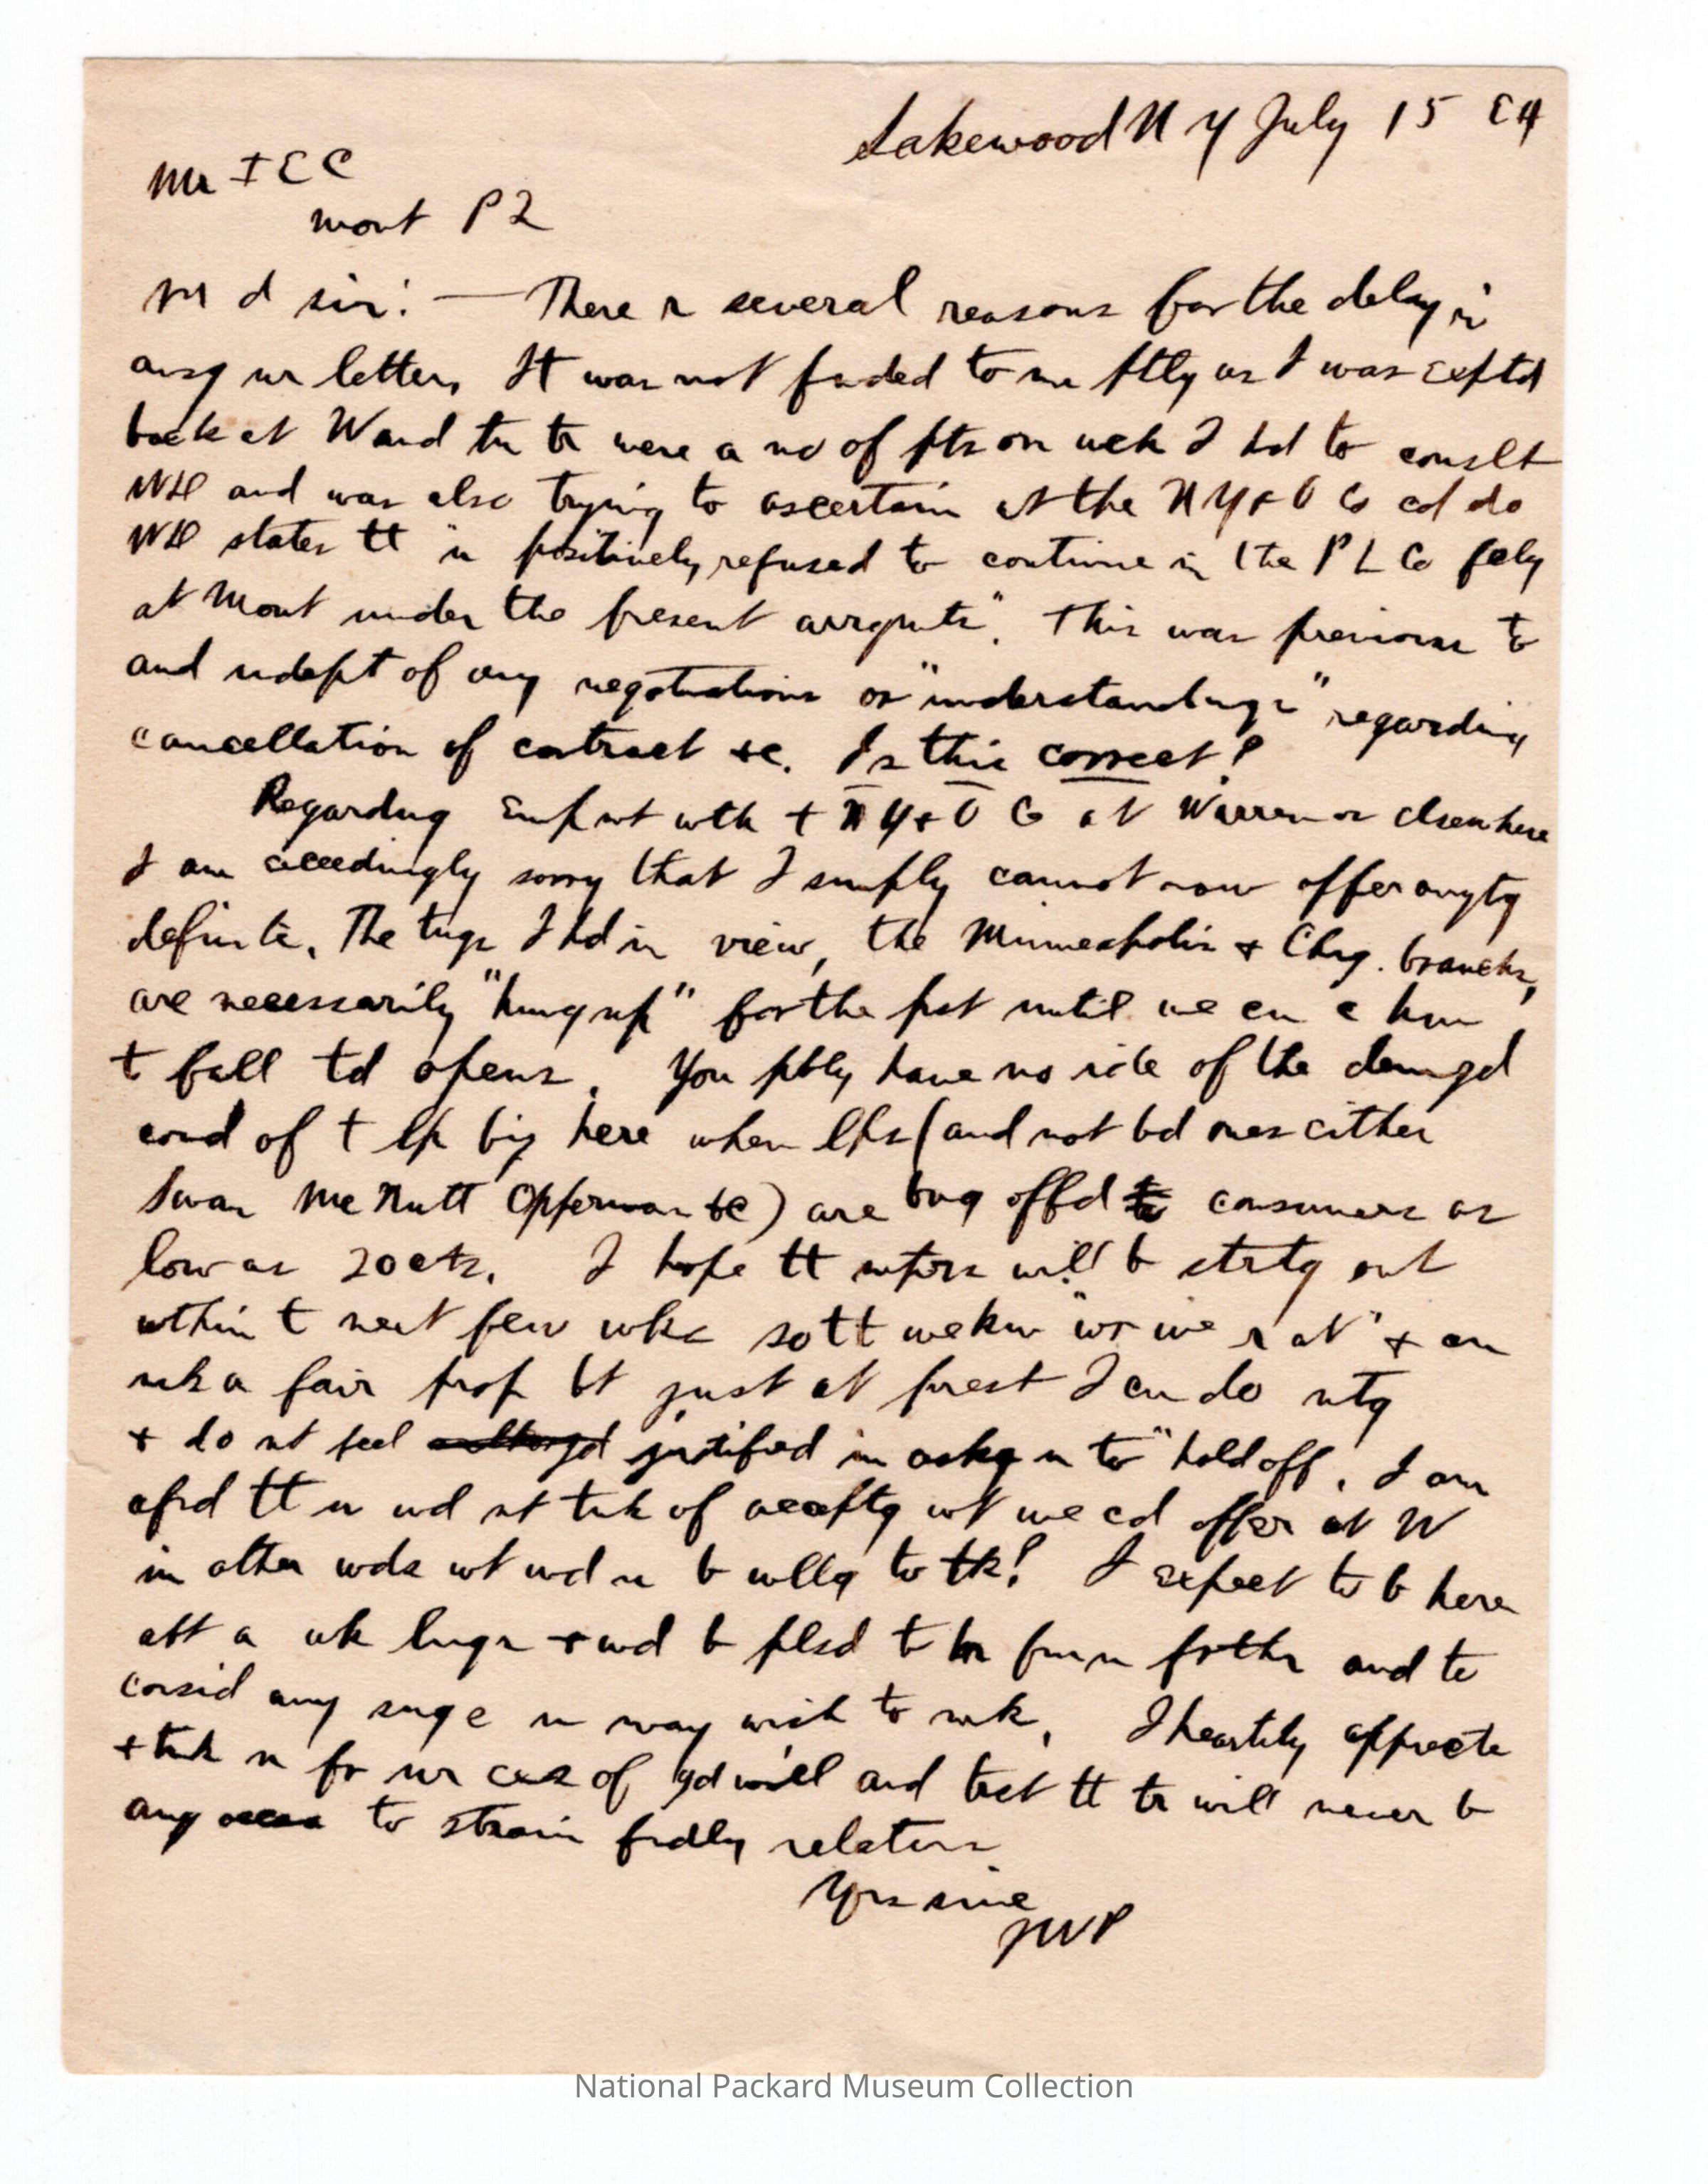 Lakewood N Y July 15 94
Mr I E C
Mont P2
M d sir: — There r several reasons for the delay in
ansg ur letter. It was not fwded to me ptly as I was exptd
back at W and tn tr were a no of pts on wch I hd to conslt
WD and was also trying to ascertain wt the N Y & O Co cd do
WD states tt "u positively refused to continue in the P L Co fcly
at Mont under the present arrgmts". This was previous to
and indept of any negotiations or "understandings" regarding
cancellation of contract &c. Is this correct?
Regarding Empmt wth t N Y & O Co at Warren or elsewhere
I am exceedingly sorry that I simply cannot now offer anytg
definite. The tngs I hd in view, the Minneapolis & Chig. branchs,
are necessarily "hung up" for the pst until we cn c hw
t fall td opens. You pbly have no idea of the demrgd
cond of t lp biz here when lps (and not bd ones either
Swan McNutt Opferman &c) are bng offd to consumers as
low as 20cts. I hope tt mtrs will b strtg out
wthin t next few wks so tt we knw "wr we r at" & cn
mk a fair prop bt just at prest I cn do ntg
& do nt feel justified in askg u to "hold off. I am
afrd tt u wd nt tnk of acceptg wt we cd offer at W
in other wds wt wd u b wllg to tk? I expect to b here
abt a wk lngr & wd b plsd t hr frm u frthr and to
consid any sugs u may wish to mk. I heartily apprecte
& tnk u fr ur exs of gd will and trst tt tr will never b
any occsn to strain frdly relatns
Yrs sinc
JWP
National Packard Museum Collection